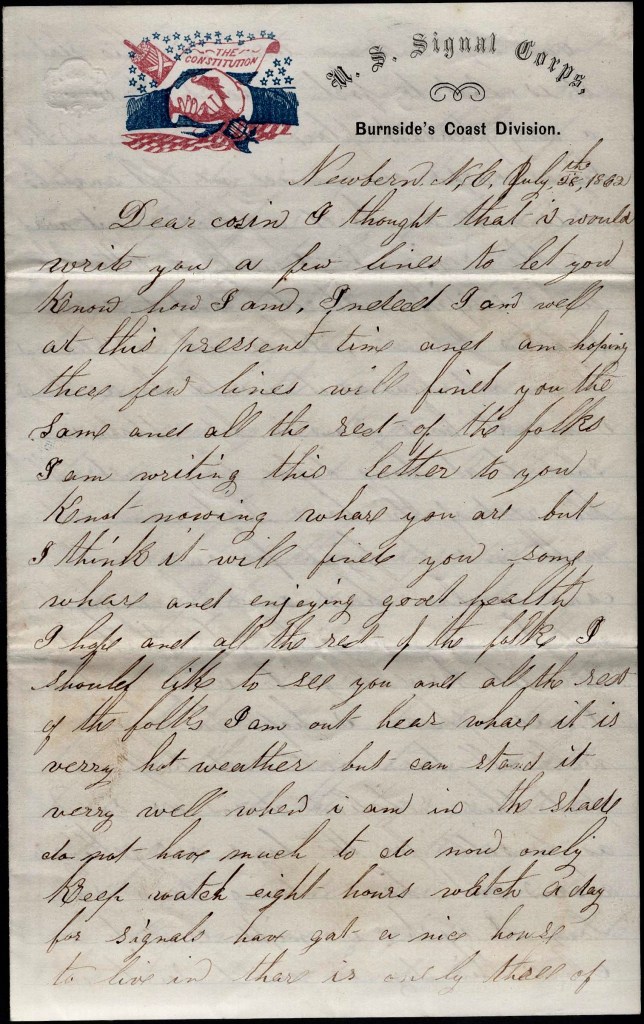 THE
CONSTITUTION
U. S. Signal Corps,
Burnside's Coast Division.
Newbern, N, C, July, 1862
Dear cosin I thought that i would
write you a few lines to let you
Know how I am, Indeed I am well
at this pressent time and am hoping
these few lines will find you the
same and all the rest of the folks
I am writing this letter to you
Knot nowing whare you are but
I think it will find you some
whare and enjoying good health
I hope and all the rest of the folks I
should like to see you and all the rest
of the folks I am out hear whare it is
verry hot weather but can stand it
verry well when i am in the shade
do not have much to do now onely
Keep watch eight hours watch a day
for signals have got a nice house
to live in thare is onely three of